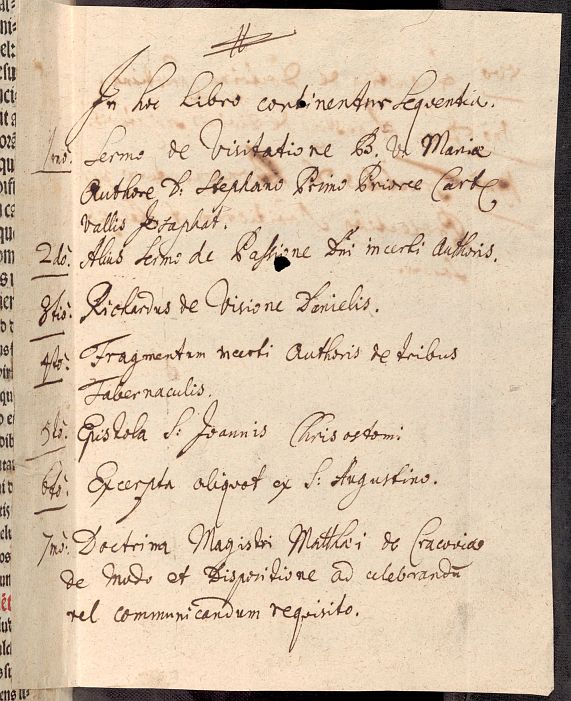 In hoc Libro continentur Sequentia.
1mò. Sermo de Visitatione B. V. Mariæ
Authore D: Stephano Primo Priore Cart
Vallis Josaphat.
2dò. Alius Sermo de Passione Dni incerti Authoris.
3tiò. Richardus de Visione Danielis.
4tò. Fragmentum incerti Authoris de tribus
Tabernaculis.
5tò. Epistola S: Joannis Chrisostomi
6tò. Excerpta aliquot ex S: Augustino.
7mò. Doctrina Magistri Matthæi de Cracovia
de Modo et Dispositione ad celebrandū
vel communicandum requisito.